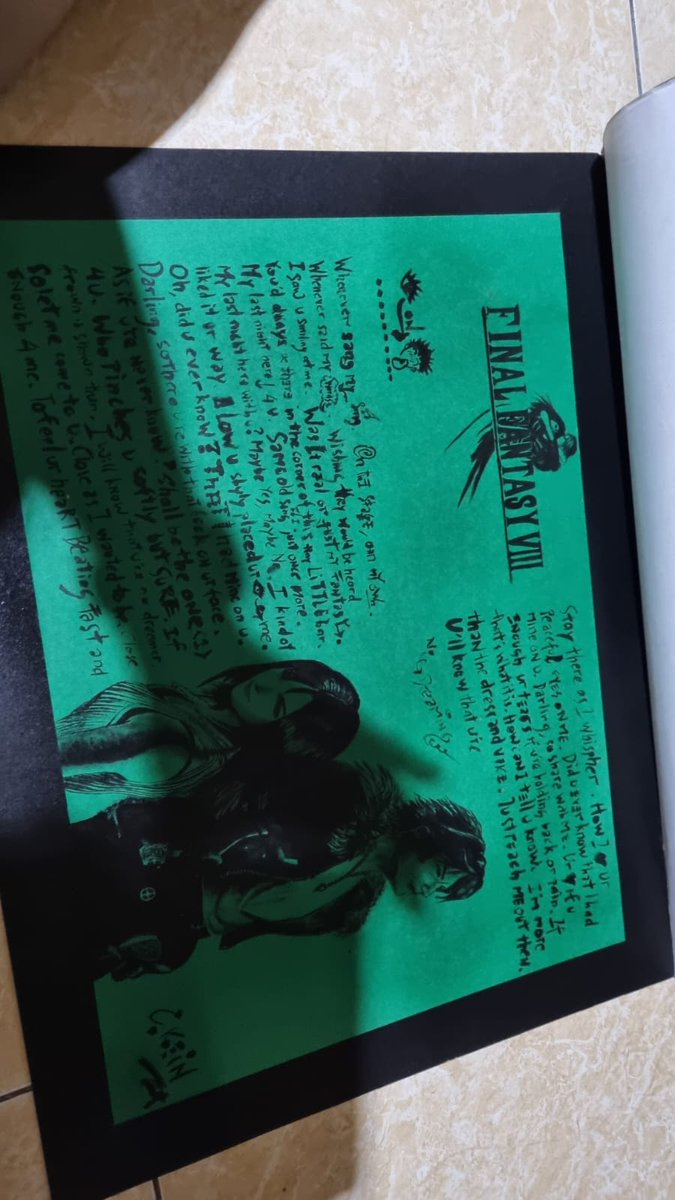 FINAL FANTASY VIII
Eyes on
Whenever sang my song, @n the stage, on my own.
Whenever said my words, Wishing they would be heard
I saw u smiling @ me. Was it real or just my Fantasy?
You'd always be there in the corner of this tiny LiTTLE bar.
My last night here 4 u Same old song, just once more.
My last night here with u? Maybe Yes, Maybe No. I kind of
liked it ur way How u shyly placed ur eyes on me.
Oh, did u ever know? That I had Mine on u.
Darling, so there u're with that look on ur face.
As if u're never Shall be the one (1)
4 u. Who Pinches u softly but SURE. If
frown is shown then, I will know that u're no dreamer
So let me come to u. Close as I wanted to be. Close
Enough 4 me. To feel ur heaRT BEating Fast and
Stay there as I whispher. How I ♥ Ur
Peaceful eyes ON ME. Did u ever know that I had
mine on u. Darling, so share with ME. Ur ♥ if u
Enough ur tears if u're holding back or pain. If
that's what it is. How can I tell u know. I'm more
than the dress and VOICE. Just reach ME out then.
U'll know that u're
Not Dreaming